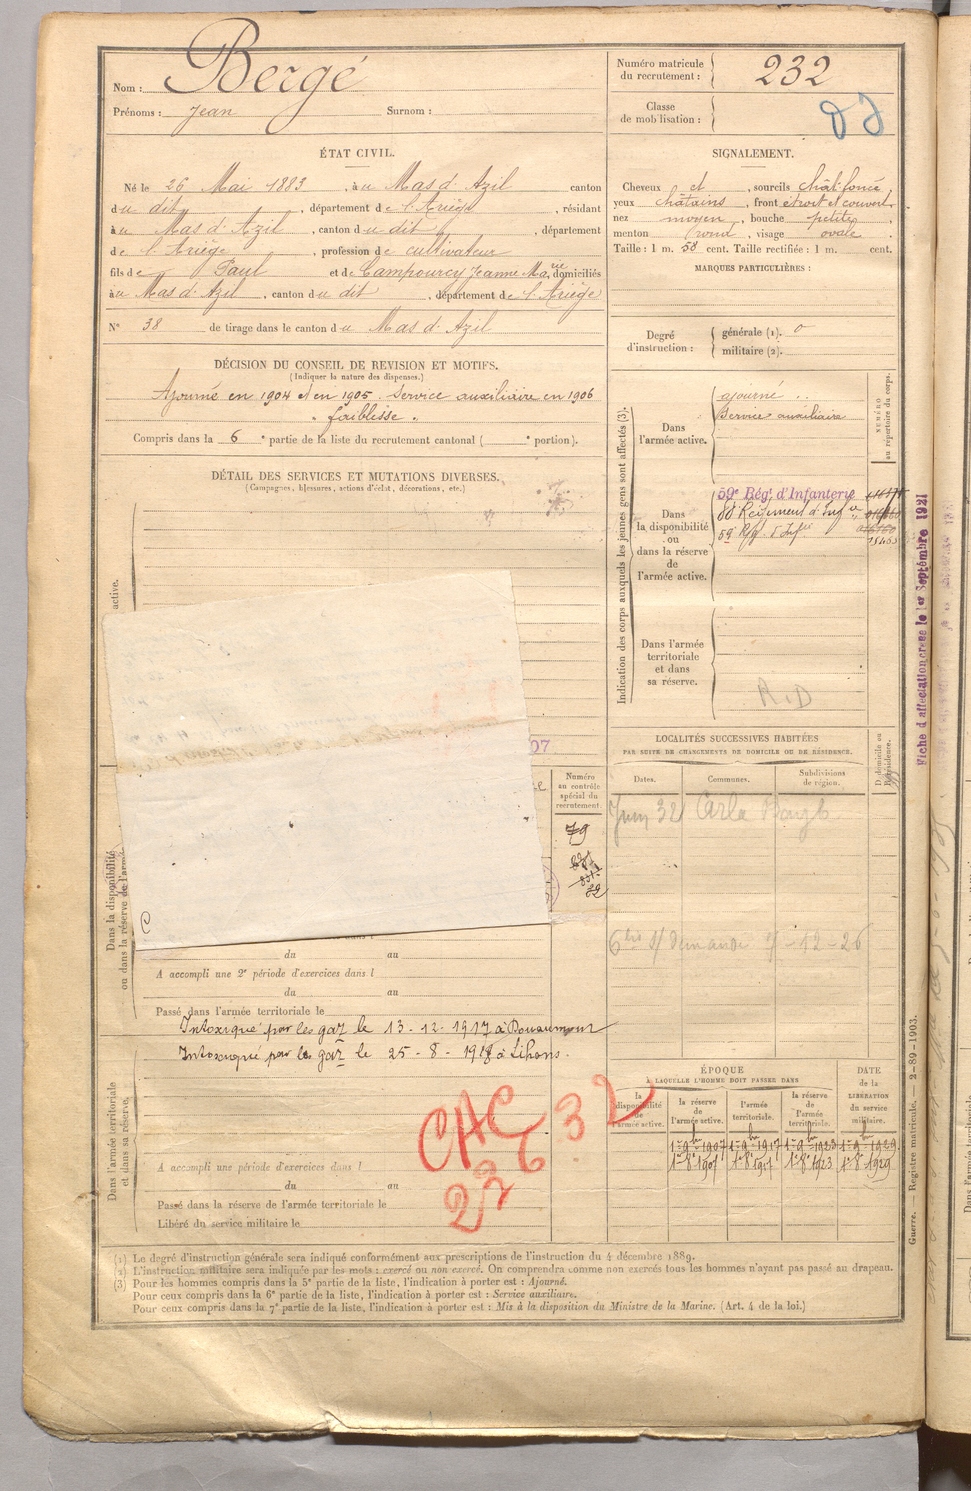 Nom : Bergé
Prénoms : Jean Surnom :
Numéro matricule du recrutement : 232
Classe de mobilisation :
ÉTAT CIVIL.
Né le 26 Mai 1883, à u Mas d'Azil canton
du dit, département de l'Ariège, résidant
à u Mas d'Azil, canton du dit, département
de l'Ariège, profession de cultivateur
fils de Paul et de Campourcy Jeanne Marie, domiciliés
à u Mas d'Azil, canton du dit, département de l'Ariège
N° 38 de tirage dans le canton du Mas d'Azil
SIGNALEMENT.
Cheveux et, sourcils chât. foncé
yeux châtains, front étroit et couvert,
nez moyen, bouche petite,
menton rond, visage ovale.
Taille : 1 m. 58 cent. Taille rectifiée : 1 m. cent.
MARQUES PARTICULIÈRES :
Degré d'instruction : générale (1). 0
militaire (2).
DÉCISION DU CONSEIL DE REVISION ET MOTIFS.
(Indiquer la nature des dispenses.)
Ajourné en 1904 et en 1905. Service auxiliaire en 1906
" faiblesse "
Compris dans la 6e partie de la liste du recrutement cantonal ( e portion).
DÉTAIL DES SERVICES ET MUTATIONS DIVERSES.
(Campagnes, blessures, actions d'éclat, décorations, etc.)
Indication des corps auxquels les jeunes gens sont affectés (3).
NUMÉRO au répertoire du corps.
Dans l'armée active.
ajourné
Service auxiliaire
Dans la disponibilité ou dans la réserve de l'armée active.
59e Rég. d'Infanterie
88 Régiment d'Infie
59e Rég. d'Infie 15463
Dans l'armée territoriale et dans sa réserve.
R.D
Fiche d'affectation créée le 1er Septembre 1921
active.
07
LOCALITÉS SUCCESSIVES HABITÉES
PAR SUITE DE CHANGEMENTS DE DOMICILE OU DE RÉSIDENCE.
D. domicile ou R. résidence.
Dates. Communes. Subdivisions de région.
Juin 32 Carla Bayle
Numéro au contrôle spécial du recrutement.
79
C
Dans la disponibilité ou dans la réserve de l'armée
du au
A accompli une 2e période d'exercices dans l
du au
Passé dans l'armée territoriale le
Intoxiqué par les gaz le 13-12-1917 à Douaumont
Intoxiqué par les gaz le 25-8-1918 à Lihons.
Dans l'armée territoriale et dans sa réserve.
CHC 32
226
A accompli une période d'exercices dans l
du au
Passé dans la réserve de l'armée territoriale le
Libéré du service militaire le
ÉPOQUE
À LAQUELLE L'HOMME DOIT PASSER DANS
la disponibilité de l'armée active.
la réserve de l'armée active.
l'armée territoriale.
la réserve de l'armée territoriale.
DATE de la LIBÉRATION du service militaire.
1er 9bre 1907 1er 9bre 1917 1er 9bre 1923 1er 9bre 1929
Guerre. — Registre matricule. — 2-89-1903.
(1) Le degré d'instruction générale sera indiqué conformément aux prescriptions de l'instruction du 4 décembre 1889.
(2) L'instruction militaire sera indiquée par les mots : exercé ou non exercé. On comprendra comme non exercés tous les hommes n'ayant pas passé au drapeau.
(3) Pour les hommes compris dans la 5e partie de la liste, l'indication à porter est : Ajourné.
Pour ceux compris dans la 6e partie de la liste, l'indication à porter est : Service auxiliaire.
Pour ceux compris dans la 7e partie de la liste, l'indication à porter est : Mis à la disposition du Ministre de la Marine. (Art. 4 de la loi.)